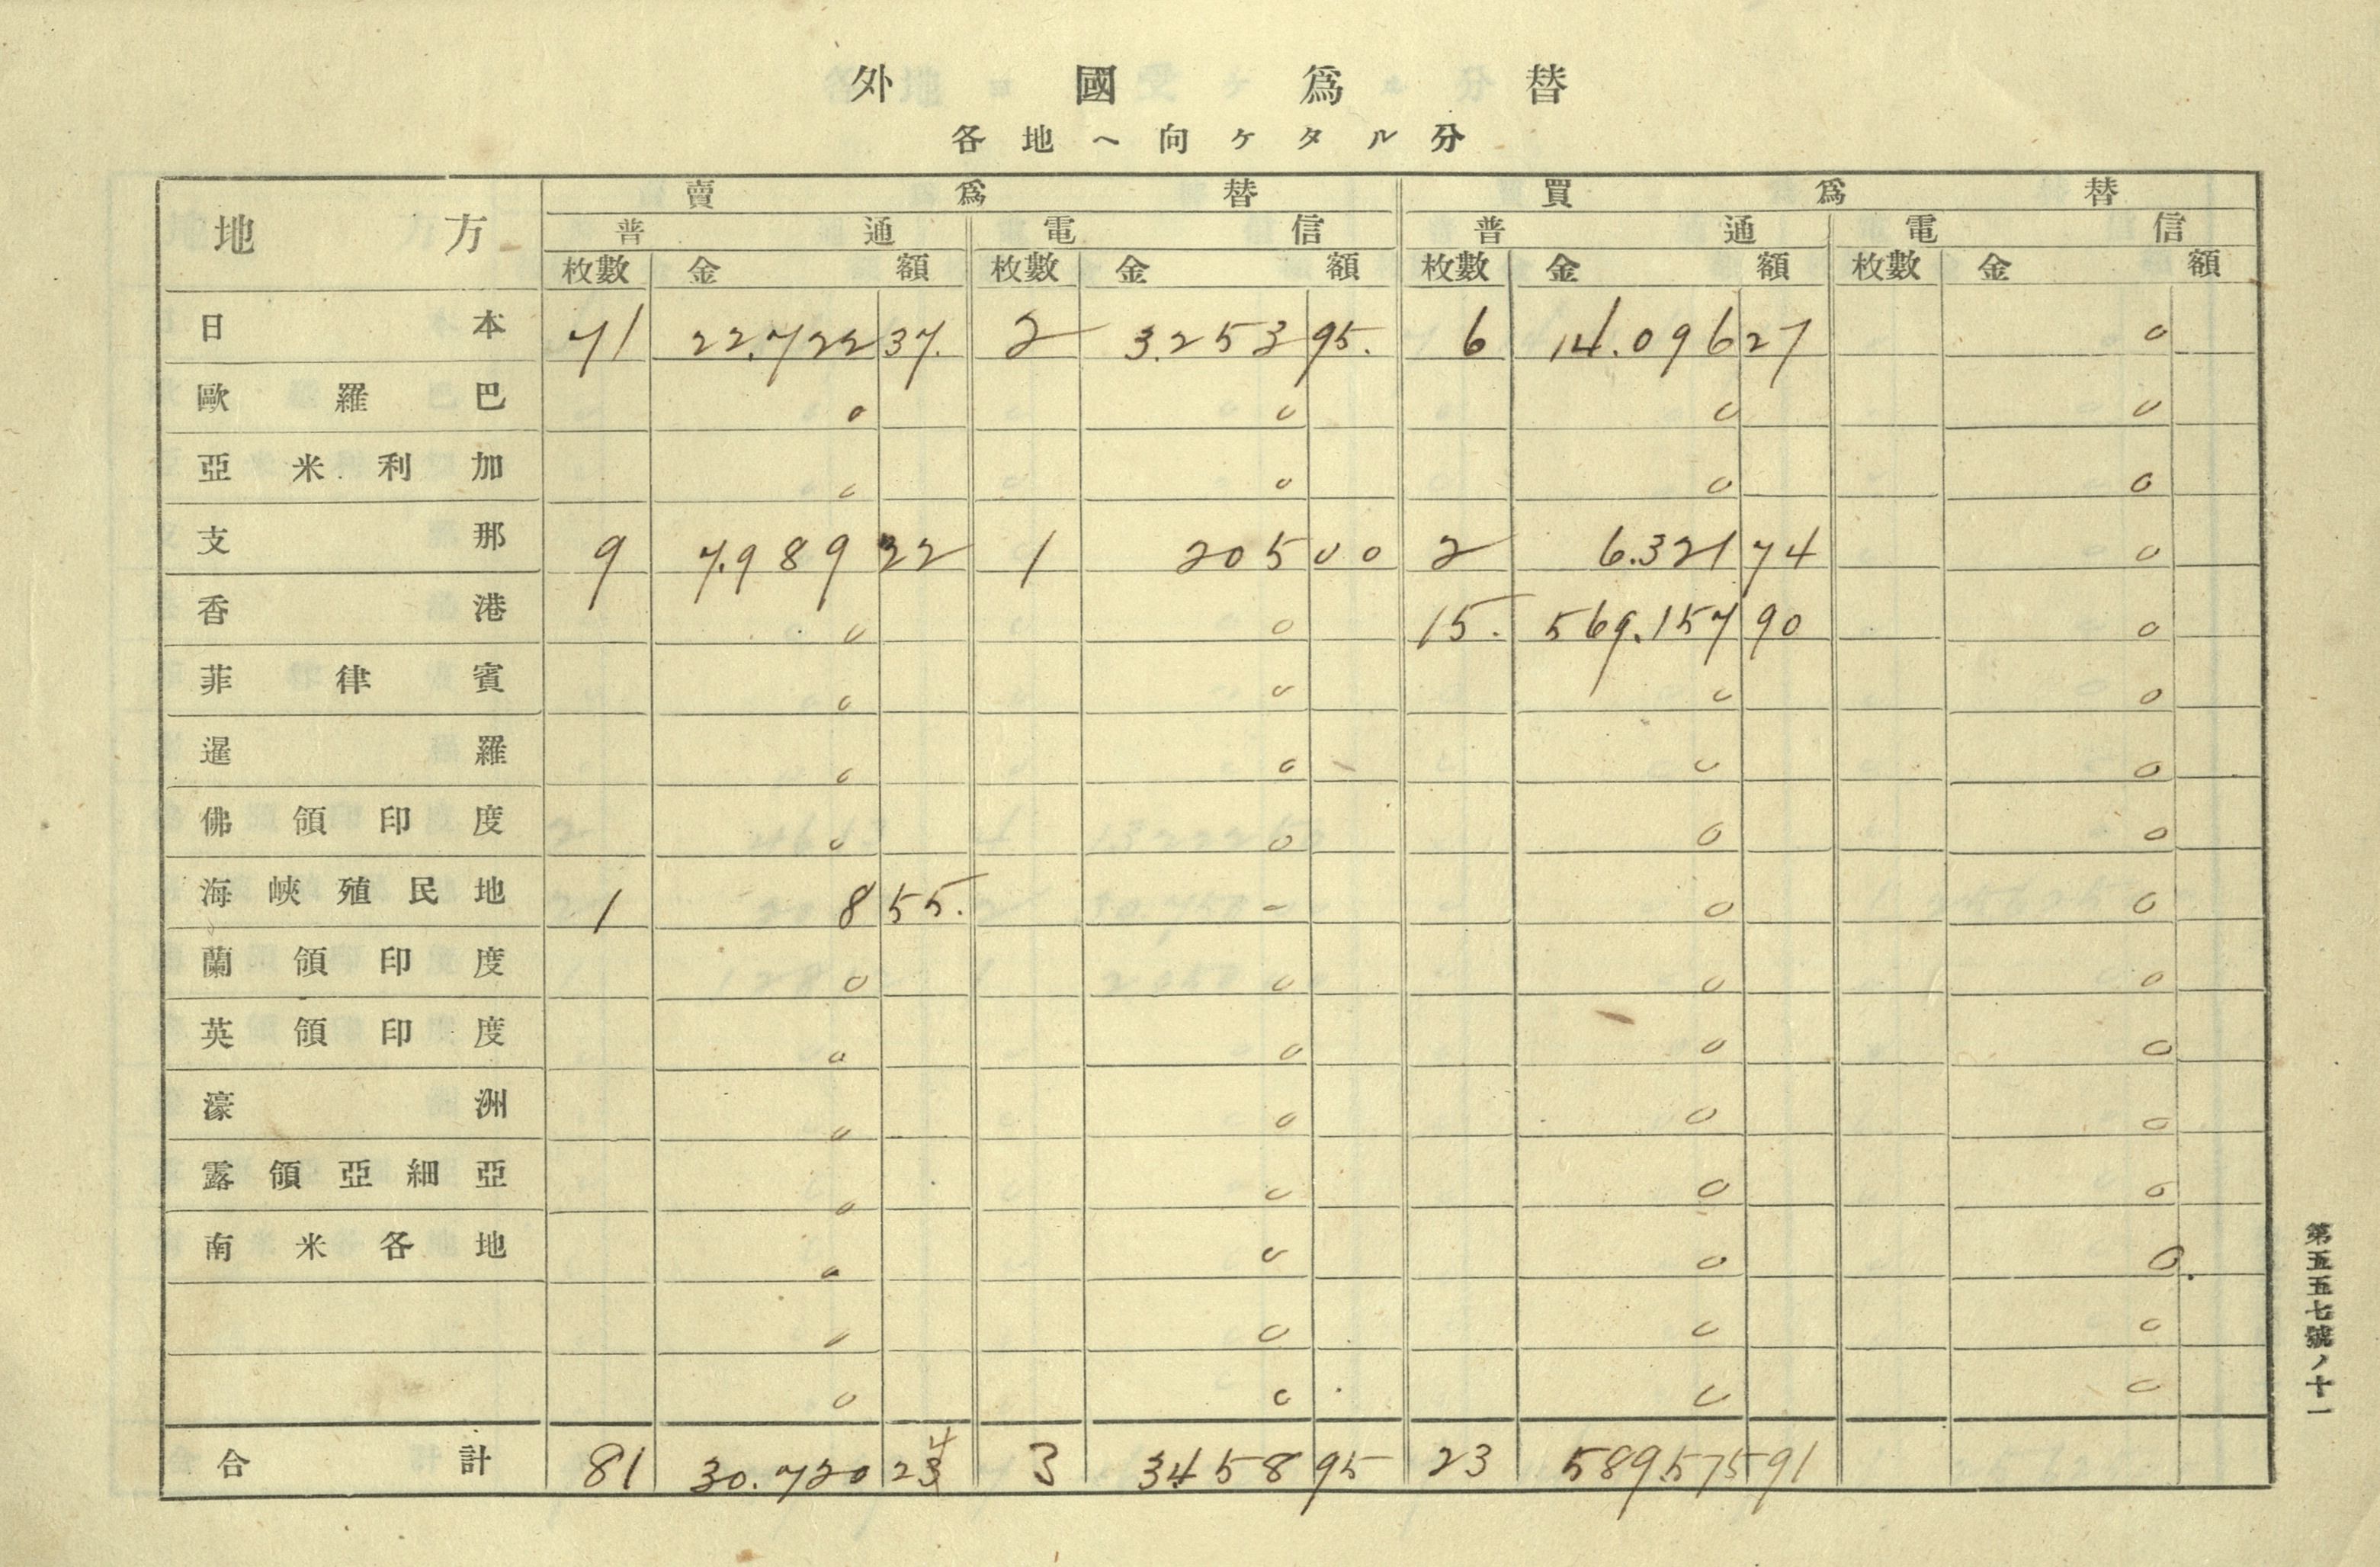 外國爲替
各地ヘ向ケタル分
地方 賣爲替 買爲替
普通 電信 普通 電信
枚數 金額 枚數 金額 枚數 金額 枚數 金額
日本 71 22.722 37. 2 3.253 95. 6 14.096 27 0
歐羅巴 0 0 0 0
亞米利加 0 0 0 0
支那 9 7.989 22 1 205 00 2 6.321 74 0
香港 0 0 15. 569.157 90 0
菲律賓 0 0 0 0
暹羅 0 0 0 0
佛領印度 0 0 0 0
海峽殖民地 1 8 55. - 0 0
蘭領印度 0 0 0 0
英領印度 0 0 0 0
濠洲 0 0 0 0
露領亞細亞 0 0 0 0
南米各地 0 0 0 0.
0 0 0 0
0 0 0 0
合計 81 30.720 24 3 3.458 95 23 589.575 91
第五五七號ノ十一